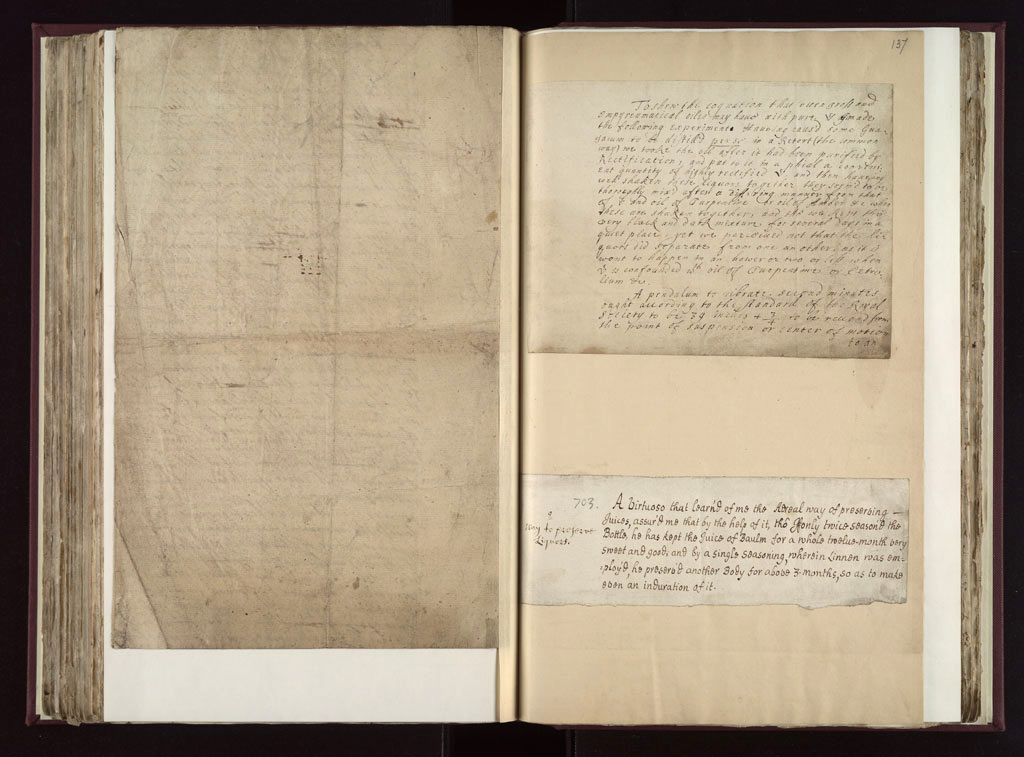 137
To shew the coquation that even gross and
Empyreumatical oiles may have with pure made
the following experiment. Haveing caus'd some Gua-
iacum to be distill'd per se in a Retort (the common
way) we tooke the oil after it had been purified by
Rectification, and put to it in a phial a conveni-
ent quantity of highly rectified and then haveing
well shaken these liquors together they seem'd to be
thoroughly mix'd after a differing manner from that
of and oil of Turpentine or oil of Amber &c when
these are shaken together; and tho we kept this
very black and dark mixture for several days in a
quiet place, yet we perceived not that the Li-
quors did separate from one an other, as it is
wont to happen in an hower or two or less when
is confounded wth oil of Turpentine or Petro-
lium &c.
A pendulum to vibrate second minutes
ought according to the standard of the Royal
Society to be 39 inches + to be reckond from
the point of suspension or center of motion
to an
703. A Virtuoso that learn'd of me the Aereal way of preserving —
Juices, assur'd me that by the help of it, tho only twice season'd the
Bottle, he has kept the Juice of Baulm for a whole twelve-month very
sweet and good; and by a single seasoning, wherein Linnen was em-
ploy'd, he preserv'd another Body for above 3 months, so as to make
even an induration of it.
Way to preserve
Liquors.